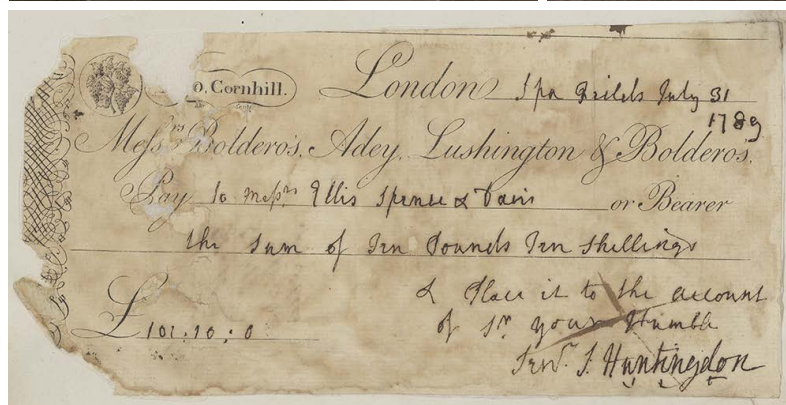 o, Cornhill.
London Spa Feilds July 31
1789
Messrs Bolderos, Adey, Lushington & Bolderos,
Pay to Messrs Ellis Spence & Davis or Bearer
the Sum of Ten Pounds Ten Shillings
& Place it to the account
£ 101:10:0
of Sr. your Humble
Servt. S. Huntingdon